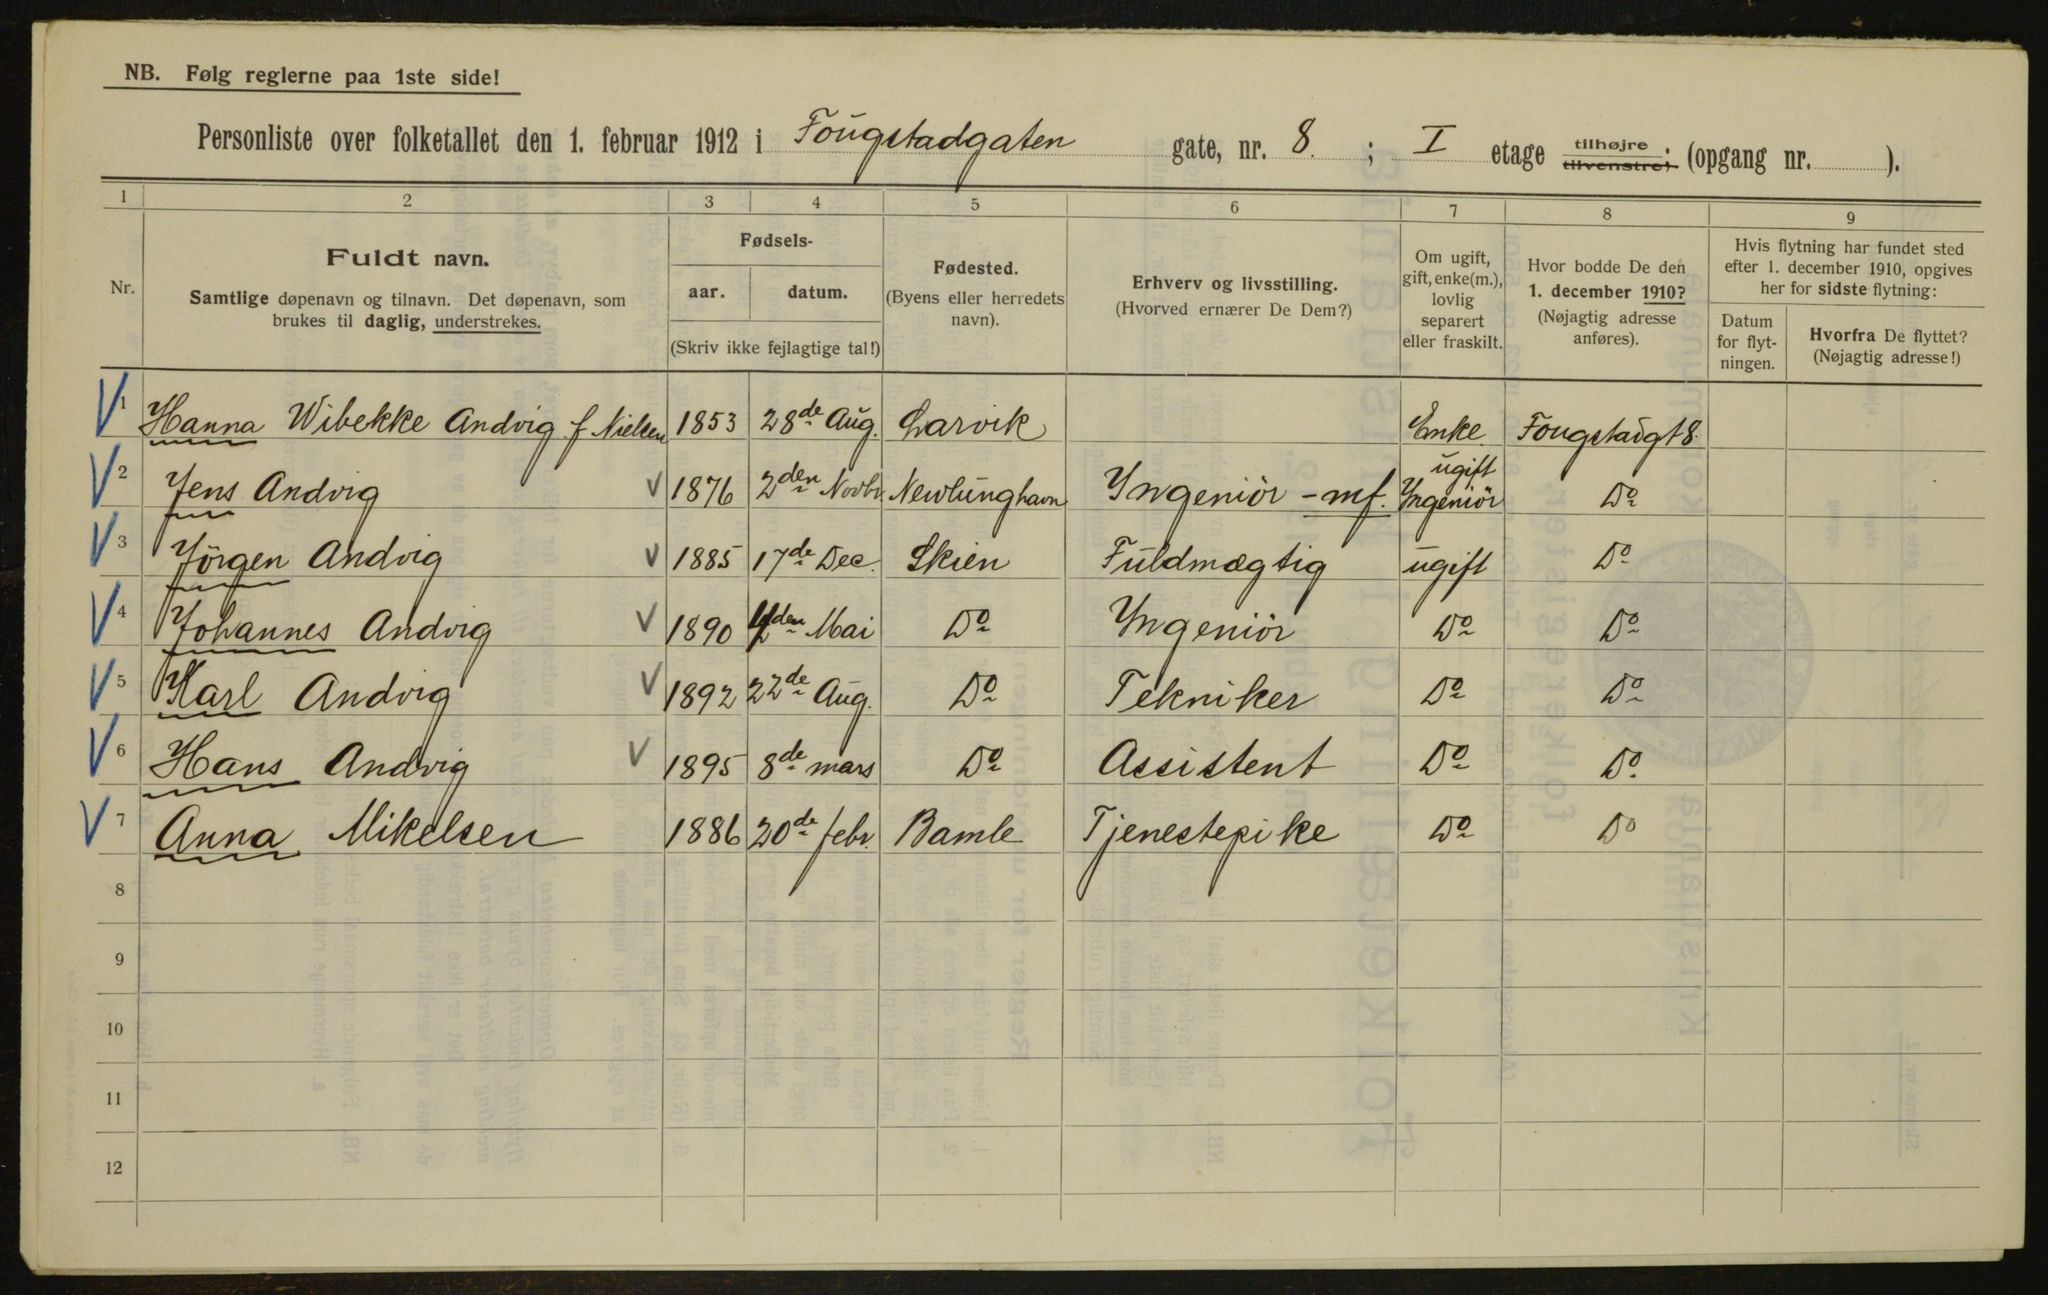 NB. Følg reglerne paa 1ste side!
Personliste over folketallet den 1. februar 1912 i Fougstadgaten gate, nr. 8. ; I etage tilhøjre tilvenstre; (opgang nr. ).
1 2 3 4 5 6 7 8 9
Nr.
Fuldt navn.
Samtlige døpenavn og tilnavn. Det døpenavn, som
brukes til daglig, understrekes.
Fødsels-
aar. datum.
(Skriv ikke fejlagtige tal!)
Fødested.
(Byens eller herredets
navn).
Erhverv og livsstilling.
(Hvorved ernærer De Dem?)
Om ugift,
gift, enke(m.),
lovlig
separert
eller fraskilt.
Hvor bodde De den
1. december 1910?
(Nøjagtig adresse
anføres).
Hvis flytning har fundet sted
efter 1. december 1910, opgives
her for sidste flytning:
Datum
for flyt-
ningen.
Hvorfra De flyttet?
(Nøjagtig adresse!)
1 Hanna Wibekke Andvig f. Nielsen 1853 28de Aug. Larvik Enke Fougstadgt 8.
2 Jens Andvig 1876 2den Novbr. Nevlunghavn Yngeniör - mf. ugift Yngeniör Do
3 Jörgen Andvig 1885 17de Dec. Skien Fuldmægtig ugift Do
4 Johannes Andvig 1890 den Mai Do Yngeniör Do Do
5 Karl Andvig 1892 22de Aug. Do Tekniker Do Do
6 Hans Andvig 1895 8de mars Do Assistent Do Do
7 Anna Mikelsen 1886 20de febr. Bamle Tjenestepike Do Do
8
9
10
11
12